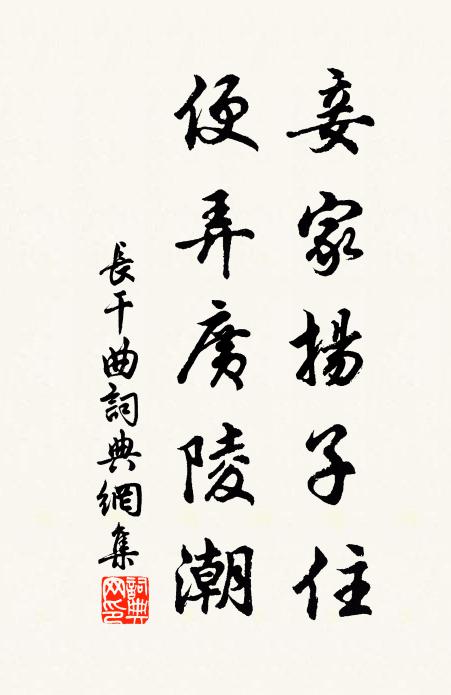 妾家揚子住
便弄廣陵潮
長干曲詞典網集
詞典网印